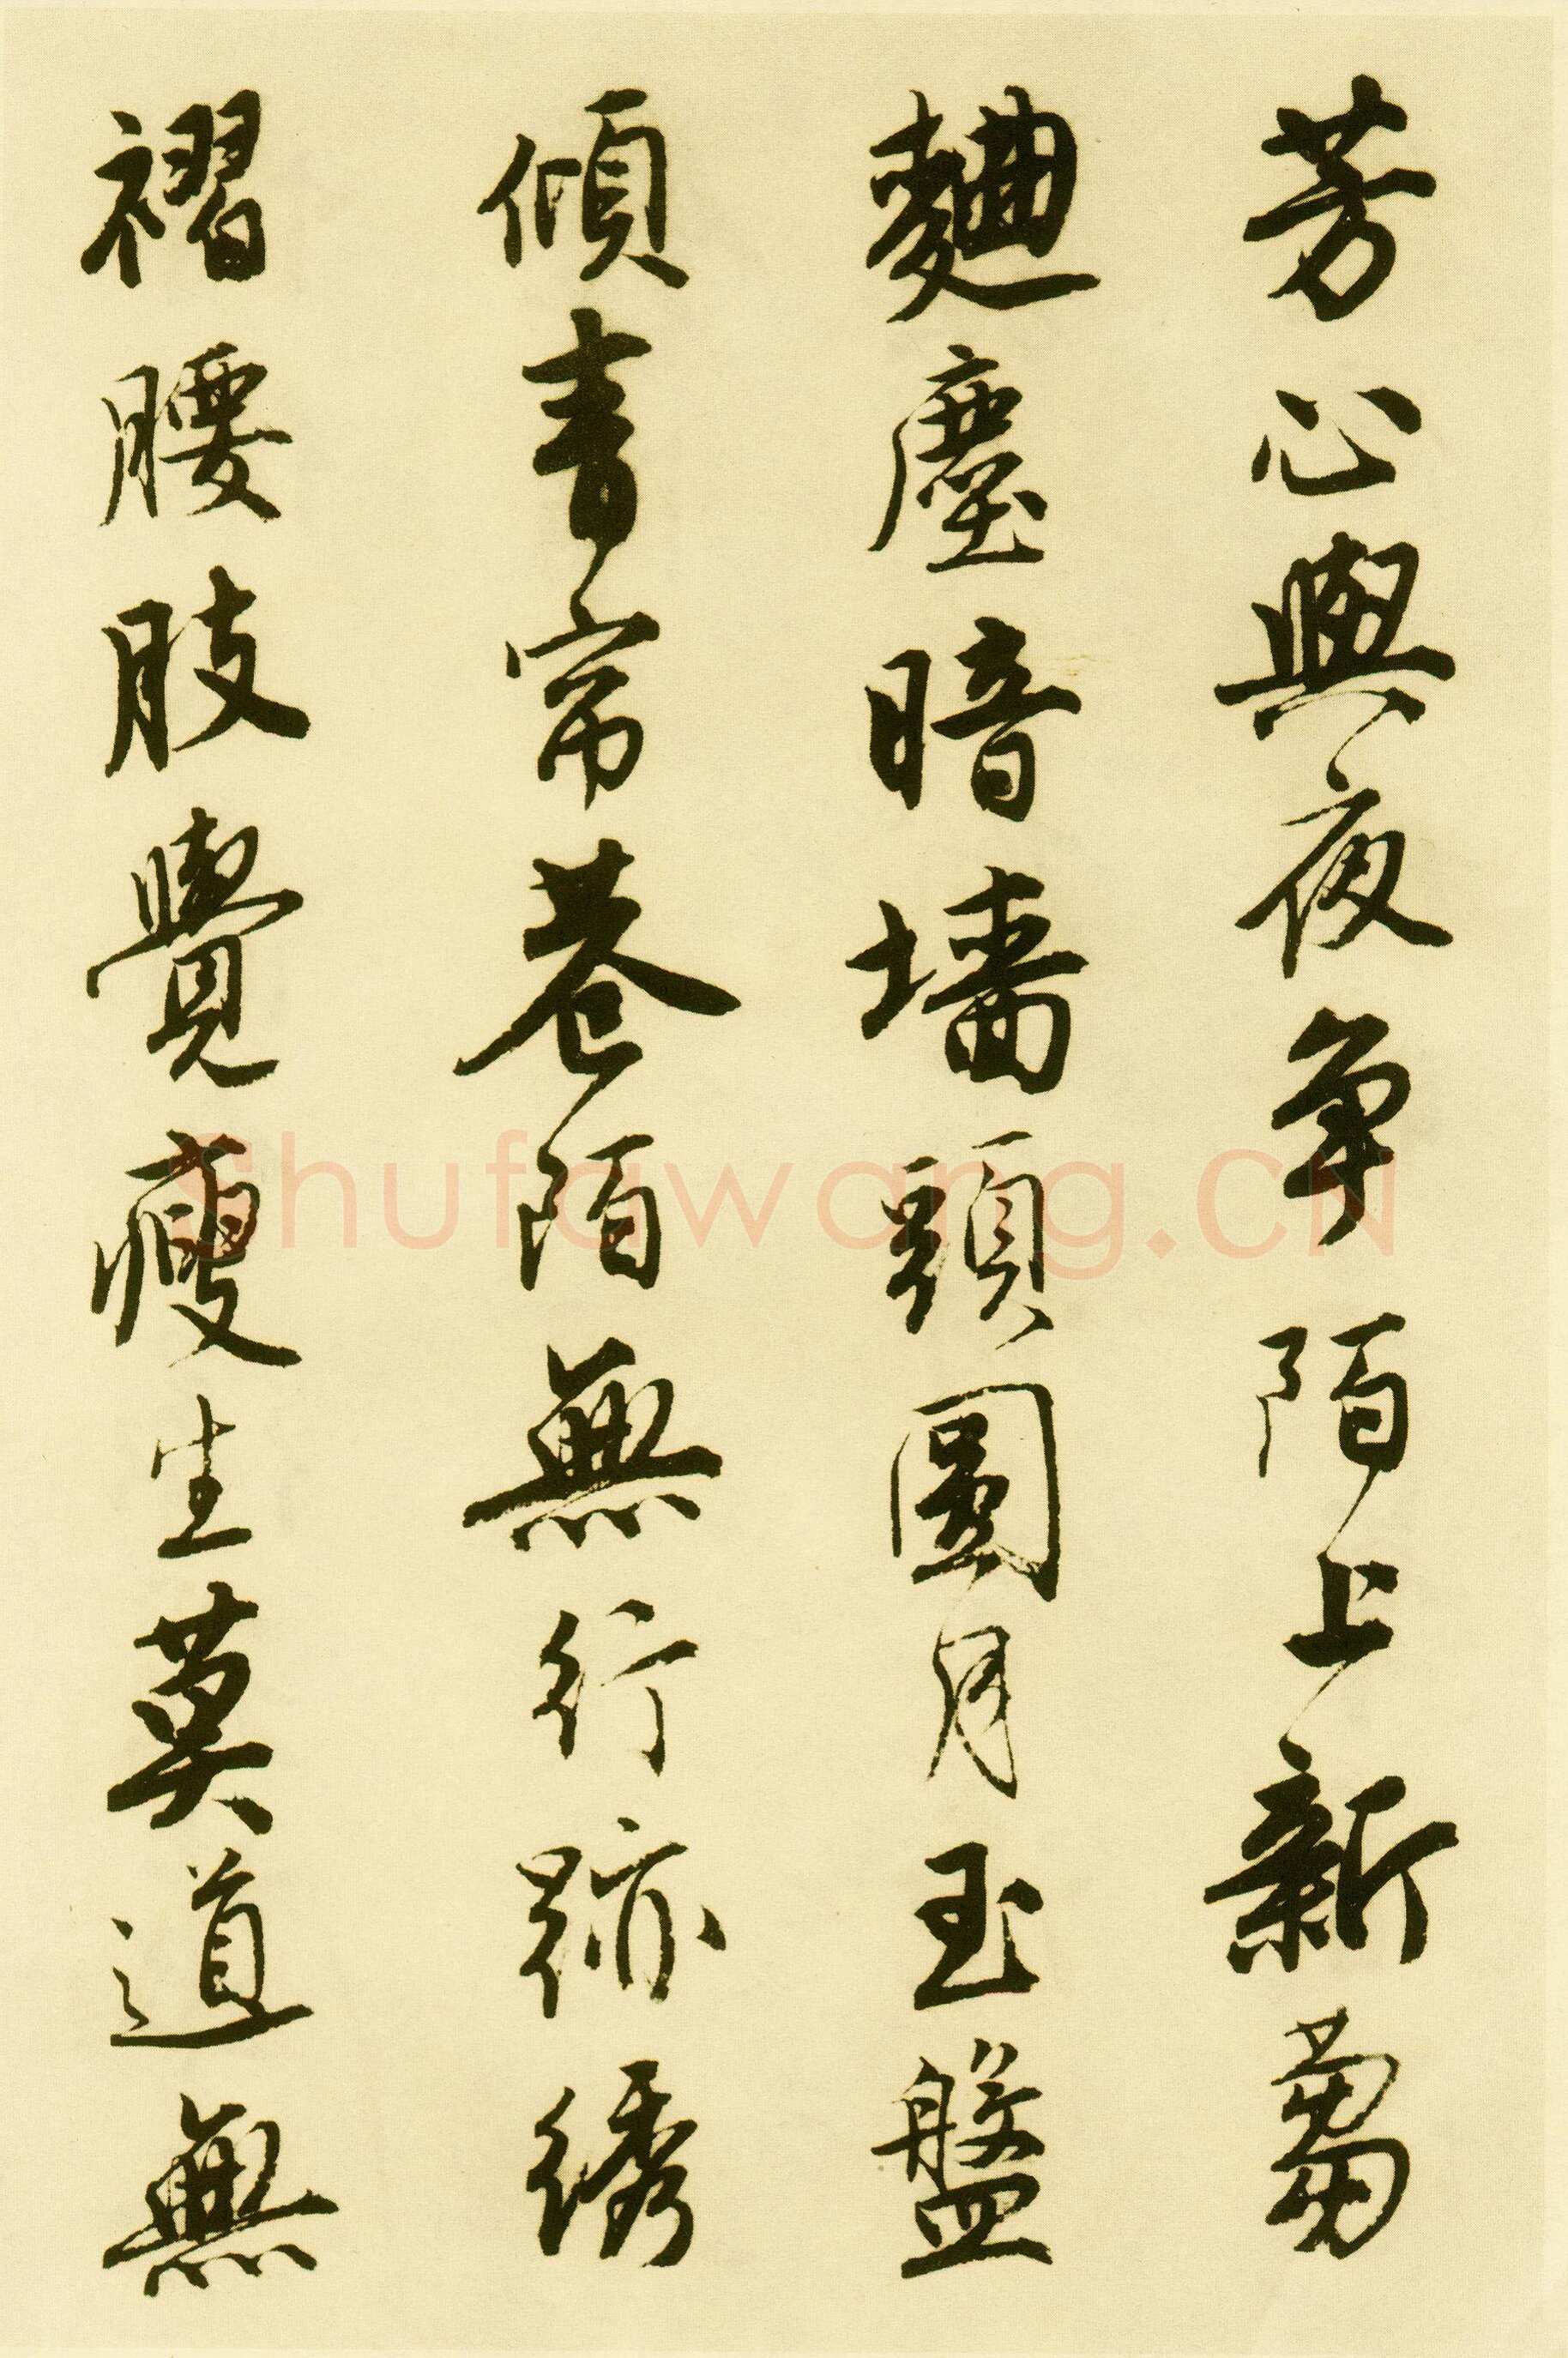 芳心與夜争陌上新蒭
麯塵暗墻頭圓月玉盤
傾青帘巷陌無行跡綉
褶腰肢覺瘦生莫道無
shufawang.CN